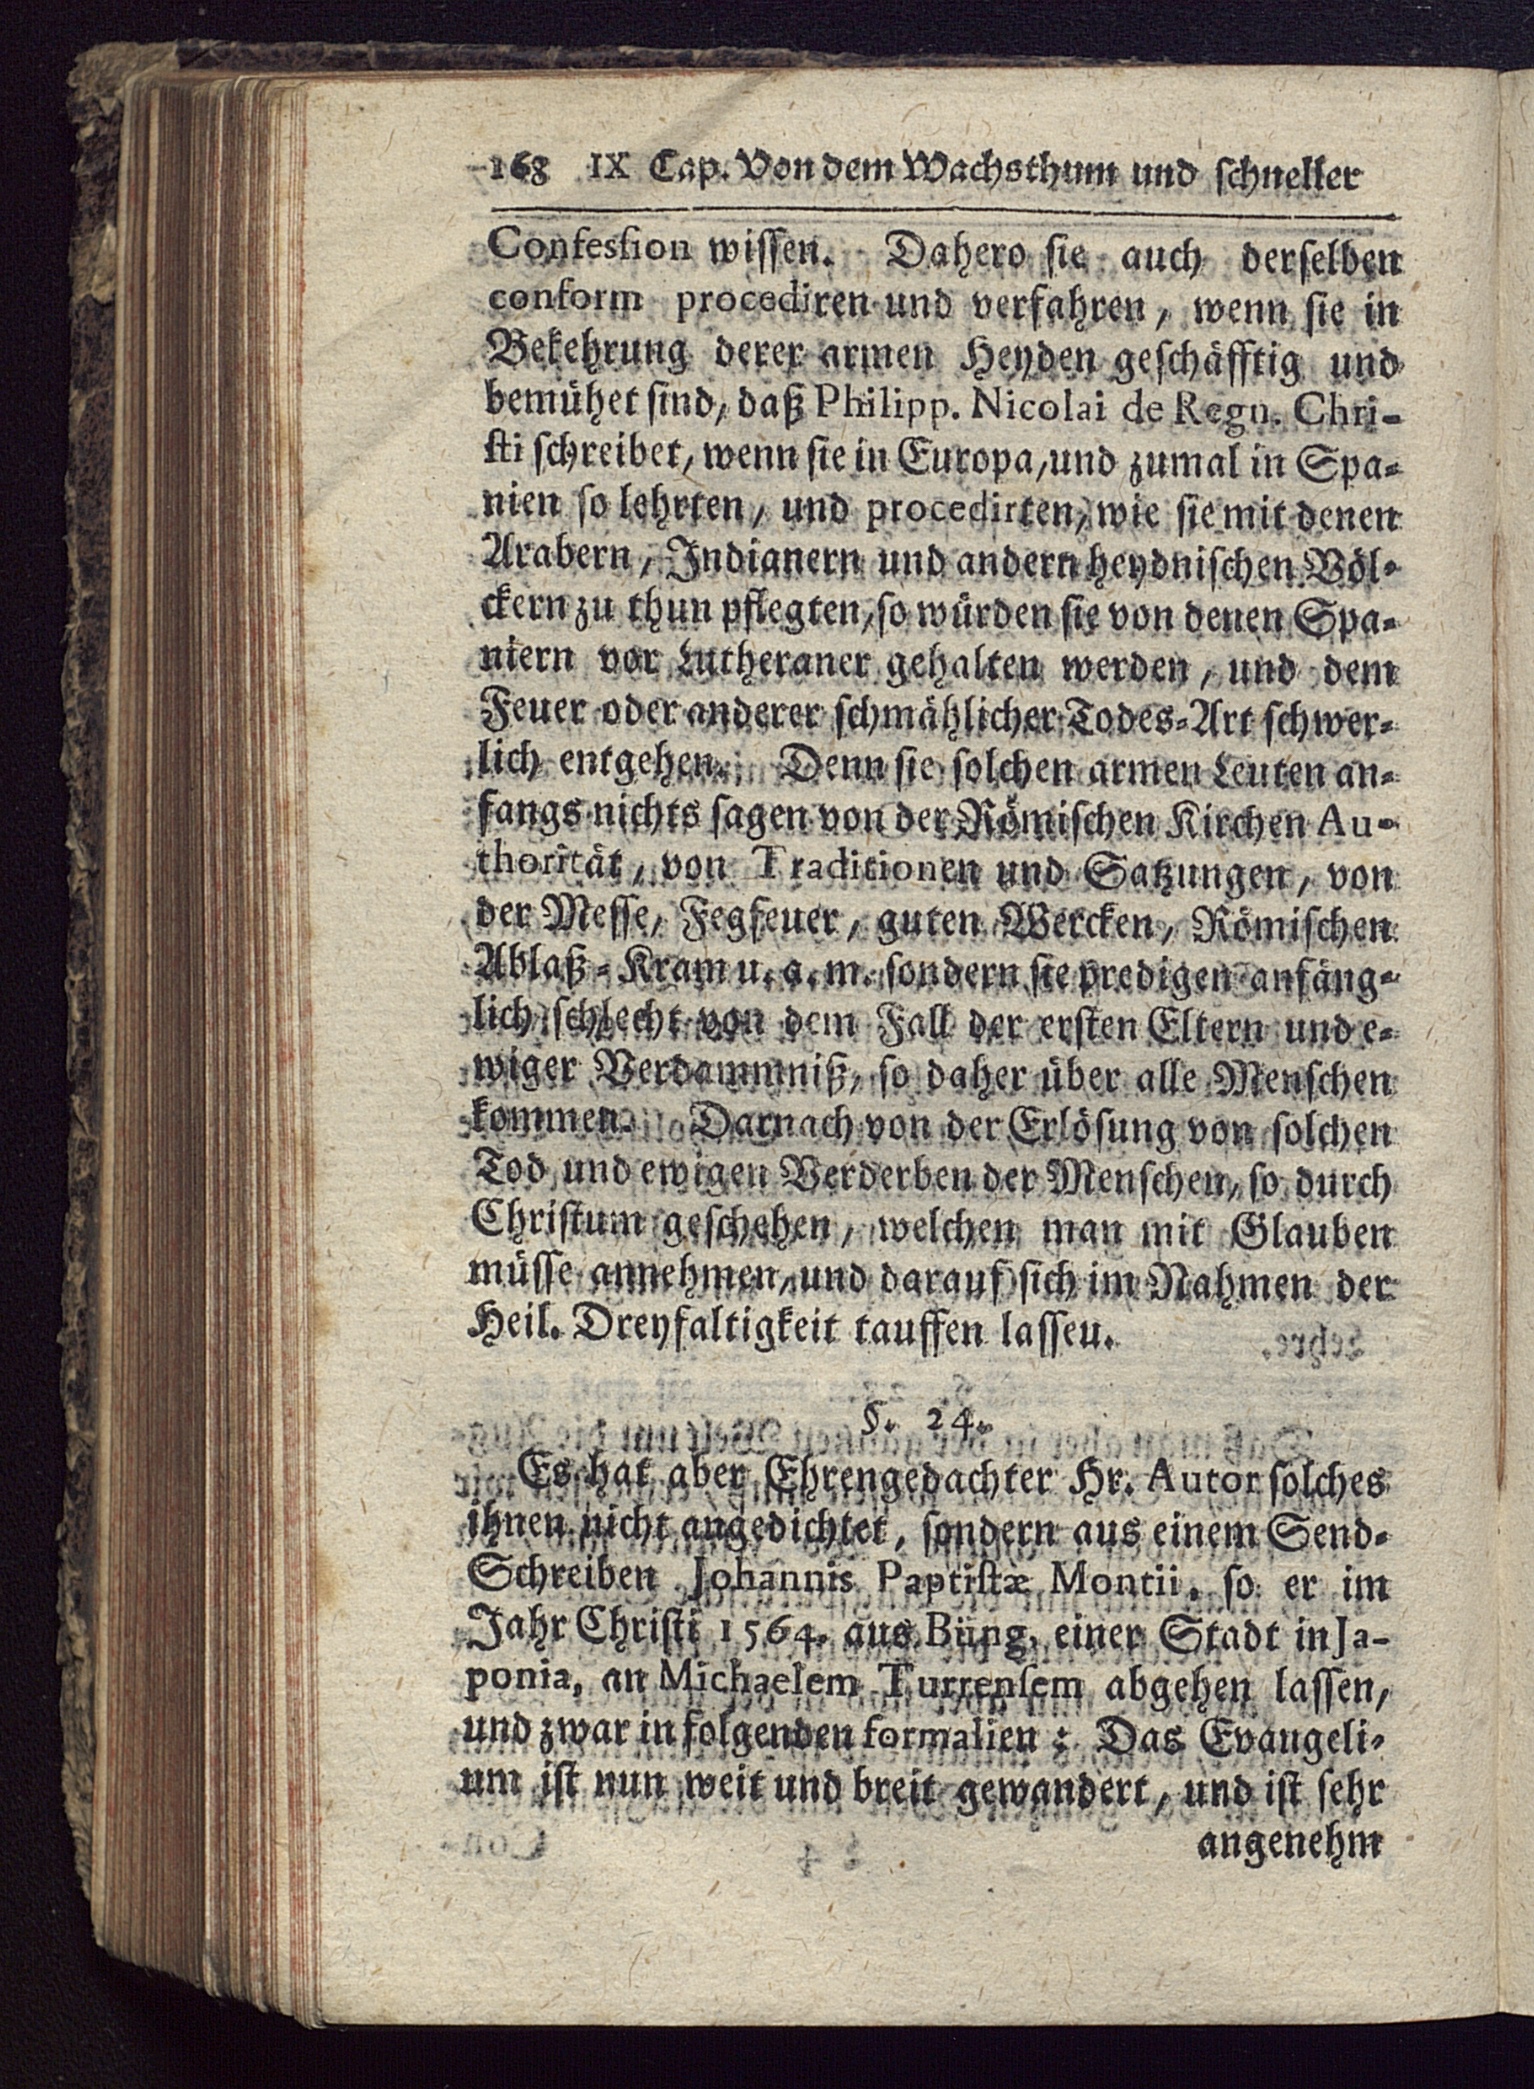 168 IX Cap. Von dem Wachsthum und schneller
Confession wissen. Dahero sie auch derselben
conform procediren und verfahren, wenn sie in
Bekehrung derer armen Heyden geschäfftig und
bemühet sind, daß Philipp. Nicolai de Regn. Chri-
sti schreibet, wenn sie in Europa, und zumal in Spa-
nien so lehrten, und procedirten, wie sie mit denen
Arabern, Indianern und andern heydnischen Völ-
ckern zu thun pflegten, so würden sie von denen Spa-
niern vor Lutheraner gehalten werden, und dem
Feuer oder anderer schmählicher Todes-Art schwer-
lich entgehen. Denn sie solchen armen Leuten an-
fangs nichts sagen von der Römischen Kirchen Au-
thorität, von Traditionen und Satzungen, von
der Messe, Fegfeuer, guten Wercken, Römischen
Ablaß-Kram u. a. m. sondern sie predigen anfäng-
lich schlecht von dem Fall der ersten Eltern und e-
wiger Verdammniß, so daher über alle Menschen
kommen. Darnach von der Erlösung von solchen
Tod und ewigen Verderben der Menschen, so durch
Christum geschehen, welchen man mit Glauben
müsse annehmen, und darauf sich im Nahmen der
Heil. Dreyfaltigkeit tauffen lassen.
§. 24.
Es hat aber Ehrengedachter Hr. Autor solches
ihnen nicht angedichtet, sondern aus einem Send-
Schreiben Johannis Paptistæ Montii, so er im
Jahr Christi 1564. aus Büng, einer Stadt in Ja-
ponia, an Michaelem Turrensem abgehen lassen,
und zwar in folgenden formalien: Das Evangeli-
um ist nun weit und breit gewandert, und ist sehr
angenehm